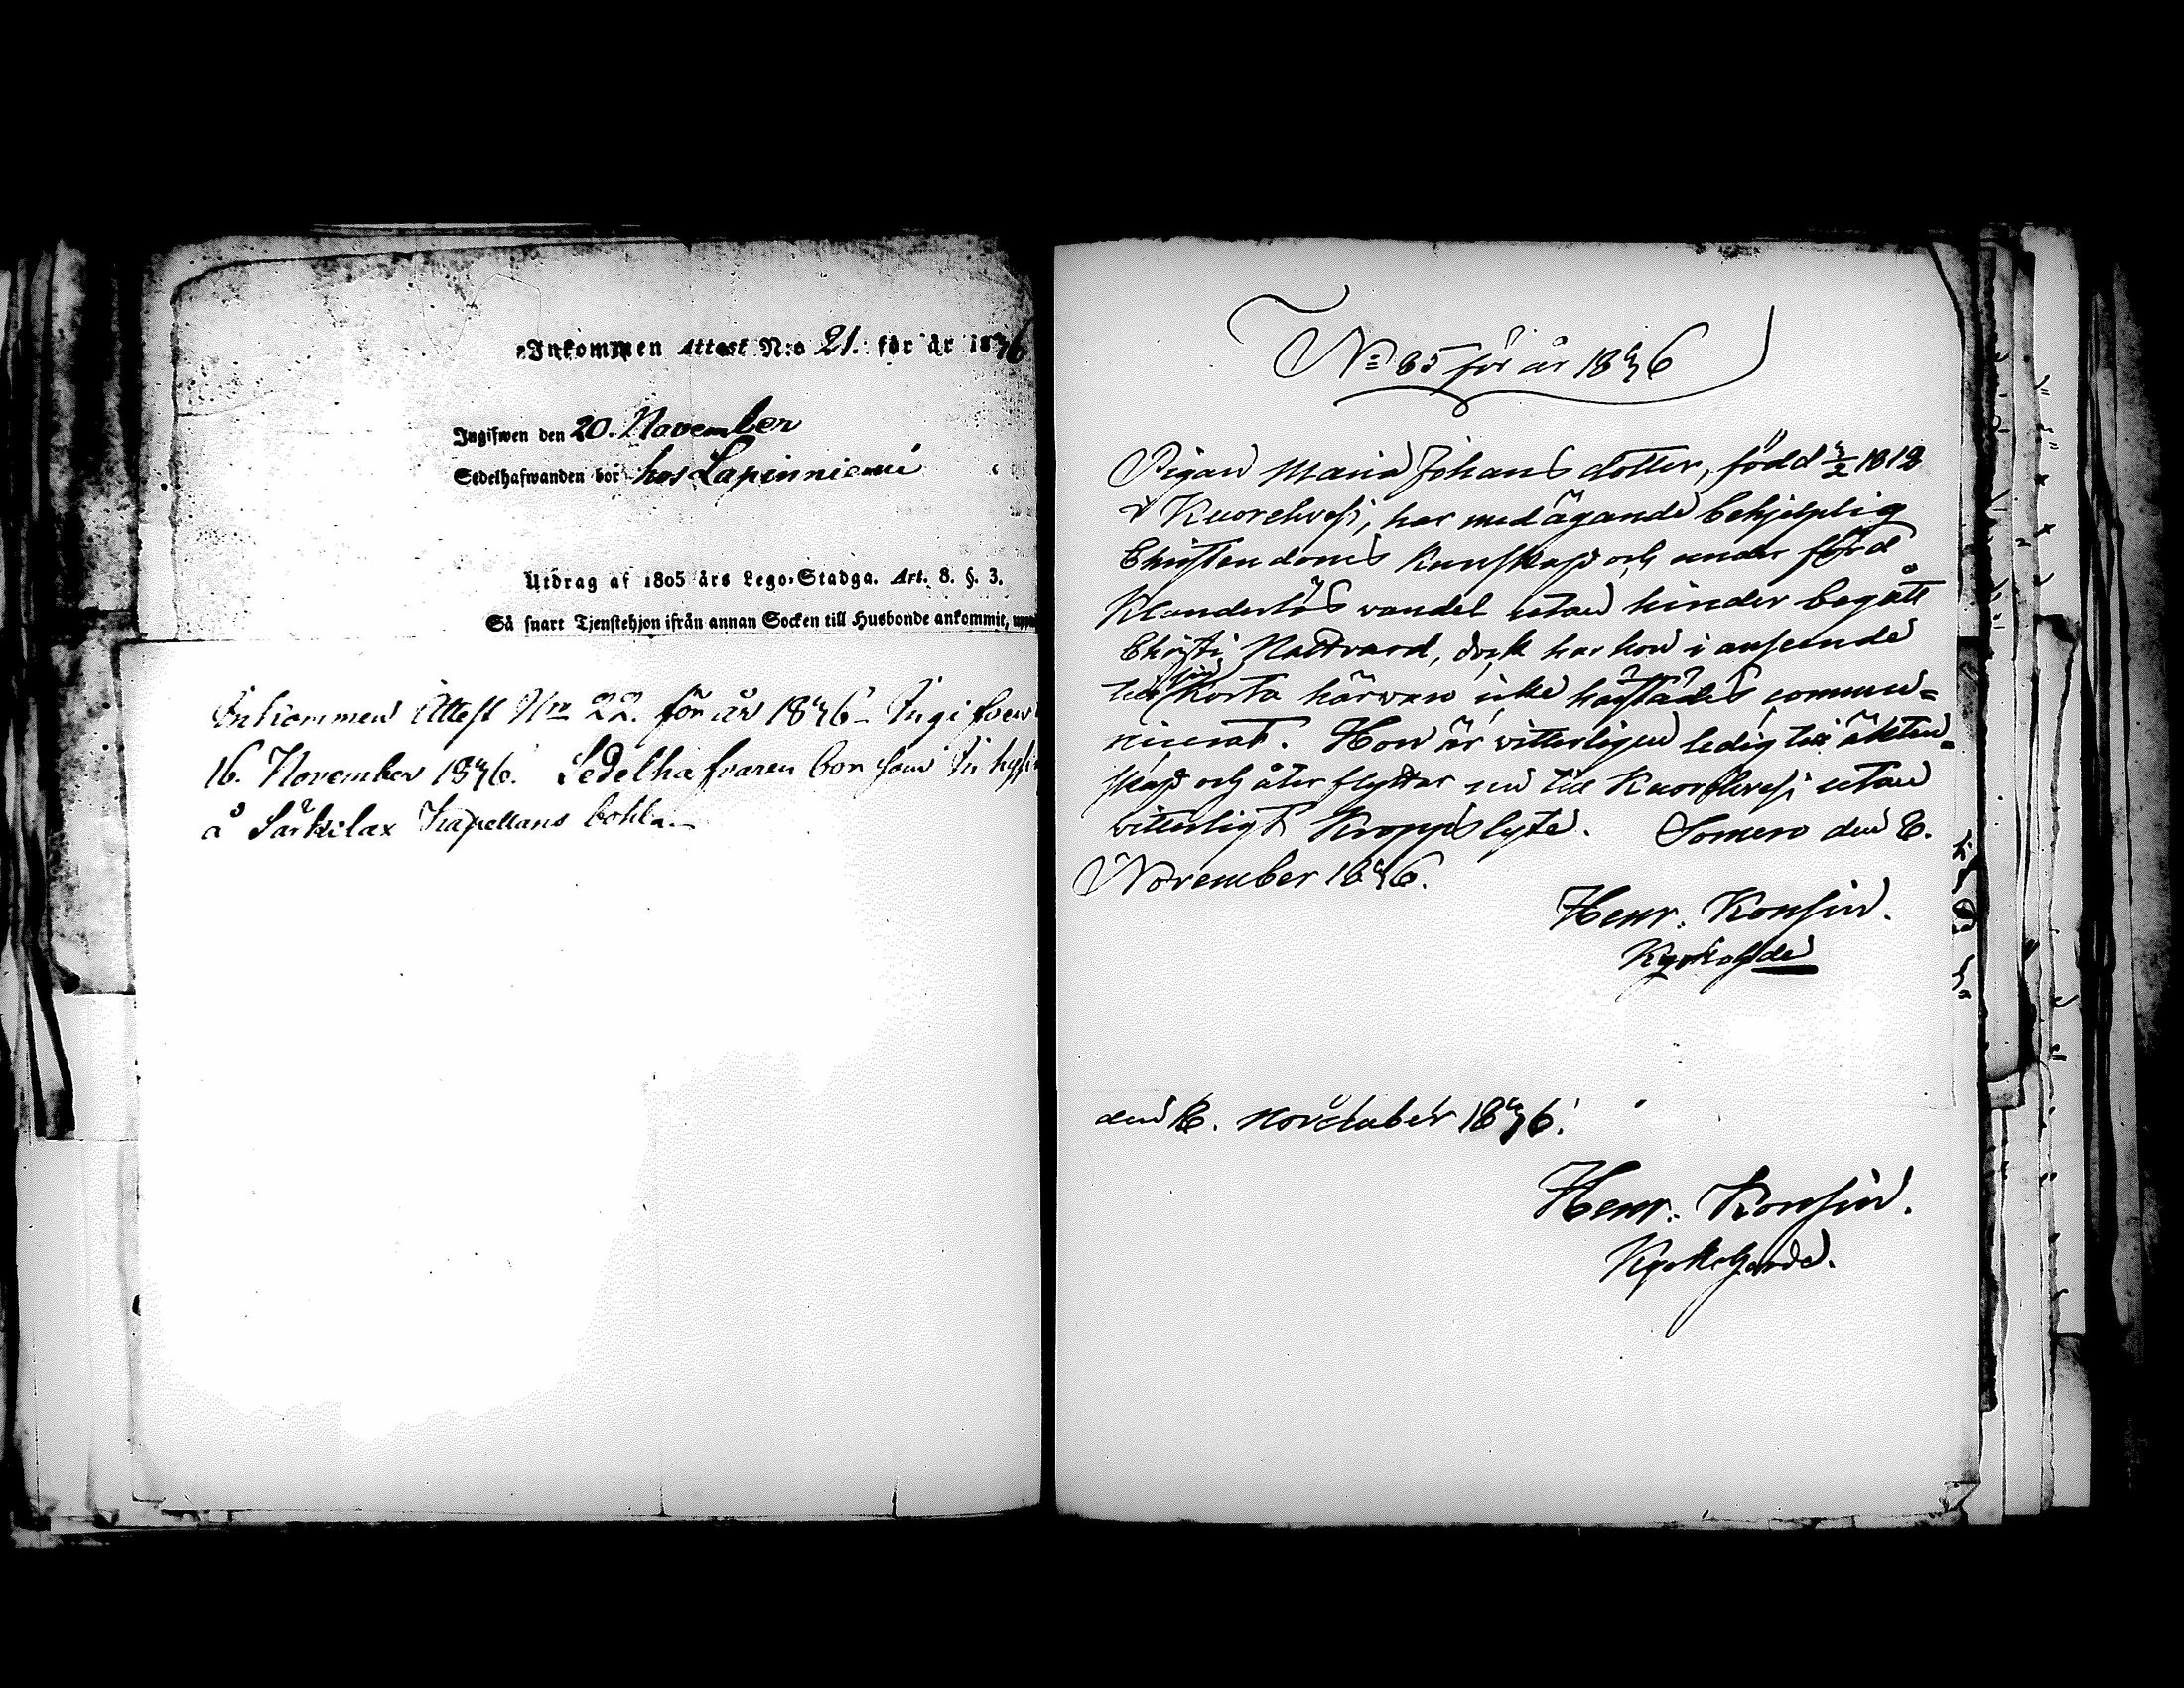 Inkommen Attest N:o 21. för år 1846
Ingifwen den 20. November
Sedelhafwanden bor hos Lapinniemi
Utdrag af 1805 års Lego-Stadga. Art. 8. §. 3.
Så snart Tjenstehjon ifrån annan Socken till Husbonde ankommit,
Inkommen Attest No 22. för år 1846. Ingifven
16. November 1846. Sedelhafvaren bor som
å Särkilax Kapellans bohl.
No 85 för år 1846
Pigan Maria Johans dotter, född 4/2 1818
i Kuorehvesi, har med ägande behjelplig
Christendoms Kunskap och under förd
Klanderlös vandel utan hinder begått
Christi Nattvard, dock har hon i anseende
till sin korta härvaro icke härstädes commu=
nicerat. Hon är vitterligen ledig till äkten=
skap och åter flyttar nu till Kuorehvesi utan
vitterligt Kropps lyte. Somero den 6.
November 1846.
Henr. Konsin.
den 6. November 1846.
Henr. Konsin.